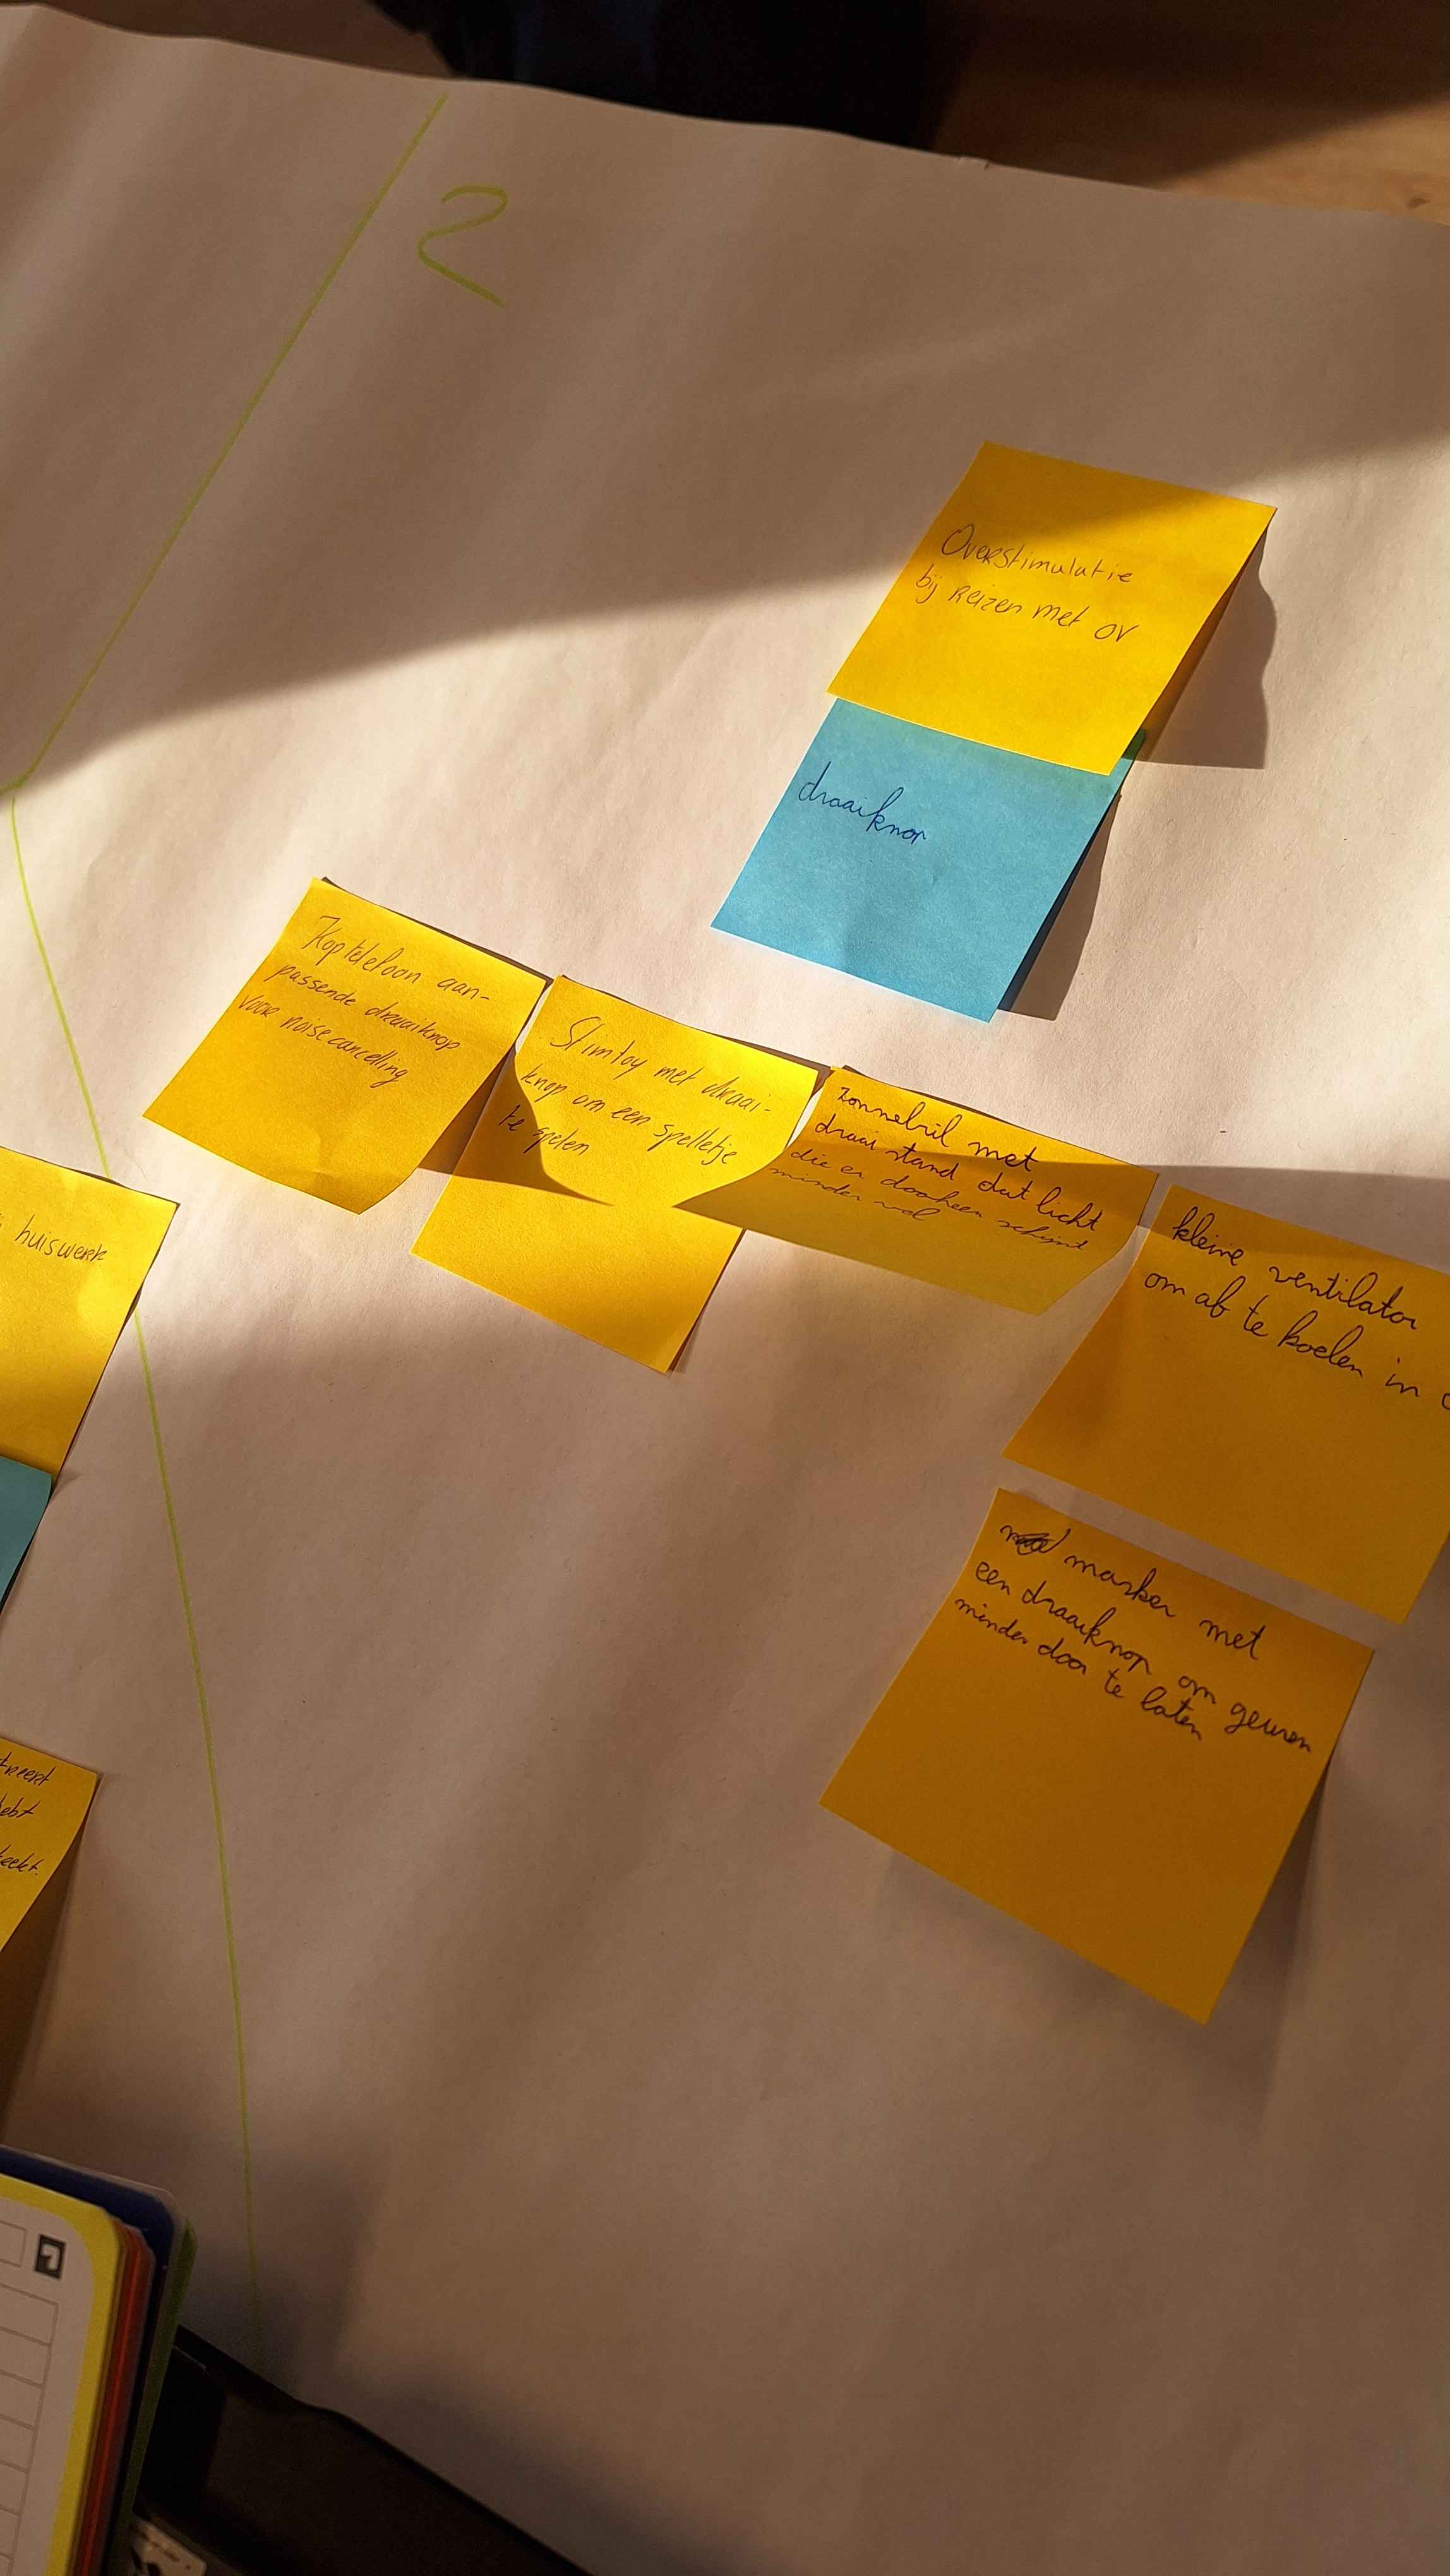 2
Overstimulatie
bij reizen met OV
draaiknop
Koptelefoon aan-
passende draaiknop
voor noisecancelling
Stimtoy met draai-
knop om een spelletje
te spelen
zonnebril met
draai stand dat licht
die er doorheen schijnt
minder wel
kleine ventilator
om af te koelen in
masker met
een draaiknop om geuren
minder door te laten
huiswerk